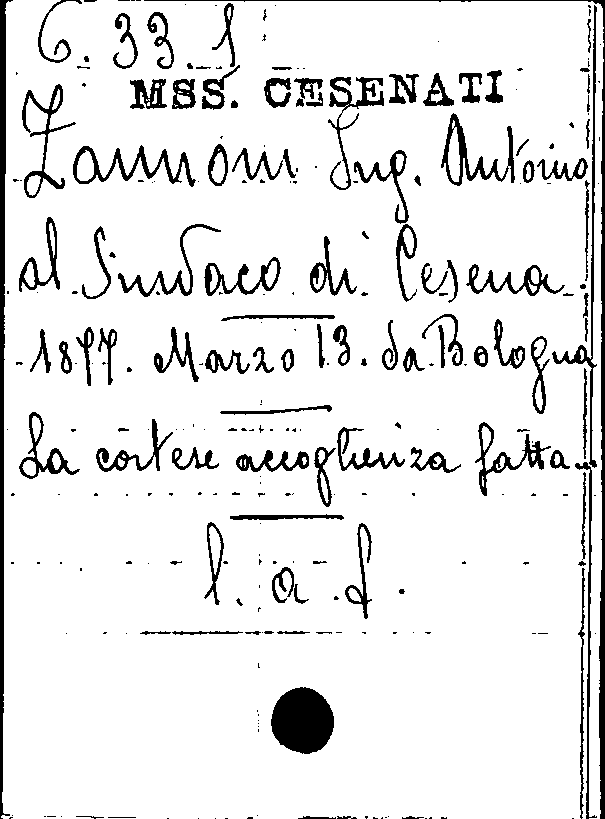 6. 33. 1
MSS. CESENATI
Zannoni Ing. Antonio
al Sindaco di Cesena.
1877. Marzo 13. da Bologna
La cortese accoglienza fatta...
l. a. f.